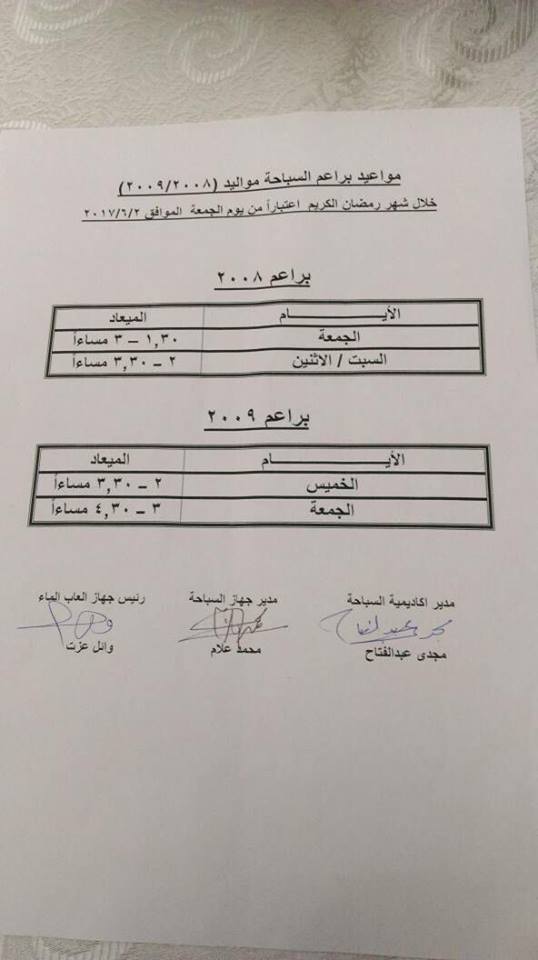 مواعيد براعم السباحة مواليد (٢٠٠٩/٢٠٠٨)
خلال شهر رمضان الكريم اعتباراً من يوم الجمعة الموافق ٢٠١٧/٦/٢
براعم ٢٠٠٨
الأيـــــــــــام الميعاد
الجمعة ١,٣٠ – ٣ مساءاً
السبت / الاثنين ٢ – ٣,٣٠ مساءاً
براعم ٢٠٠٩
الأيـــــــــــام الميعاد
الخميس ٢ – ٣,٣٠ مساءاً
الجمعة ٣ – ٤,٣٠ مساءاً
مدير اكاديمية السباحة مدير جهاز السباحة رئيس جهاز العاب الماء
مجدى عبدالفتاح
مجدى عبدالفتاح محمد علام وائل عزت